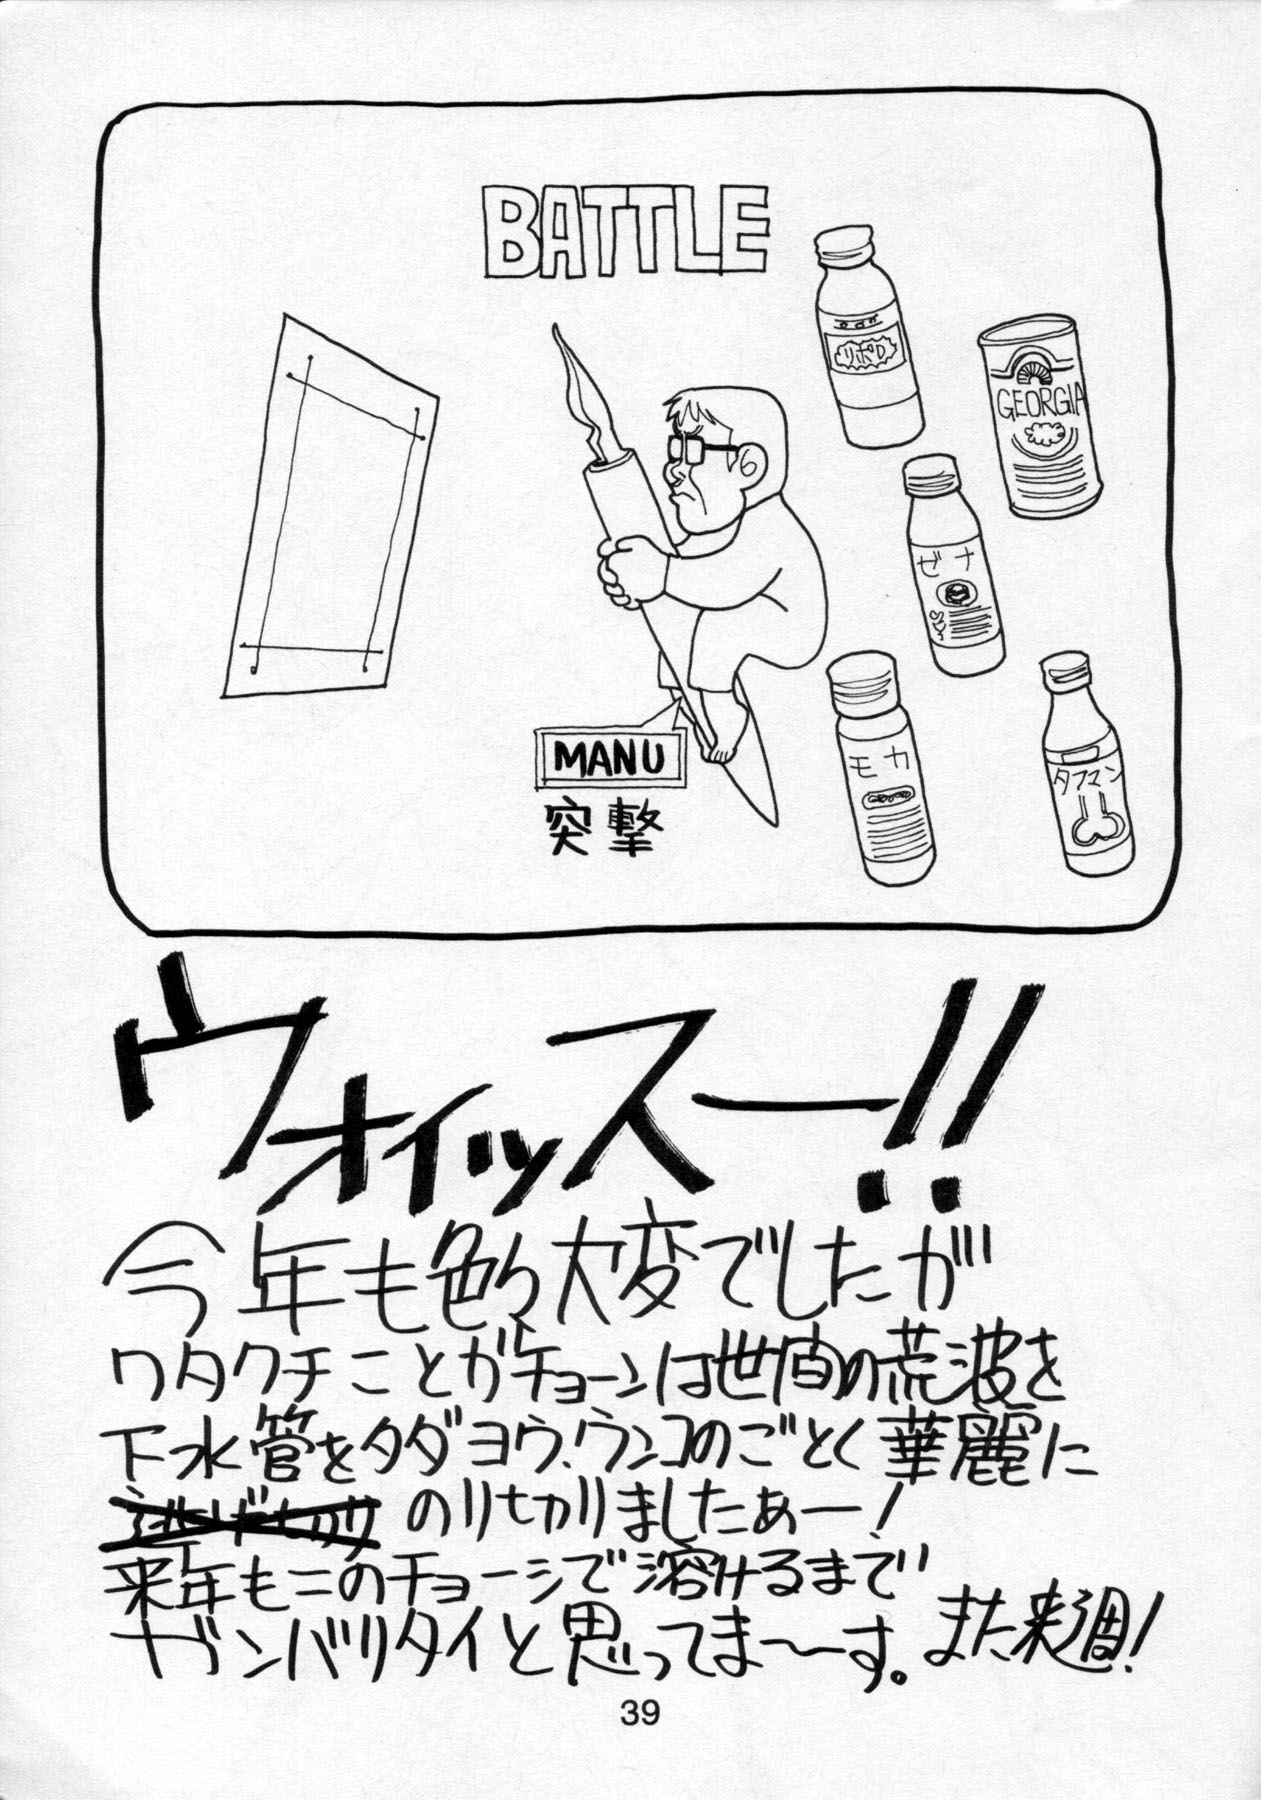 BATTLE
リポD
GEORGIA
ゼナ
MANU
突撃
モカ
タフマン
ウォイッスー!!
今年も色々大変でしたが
ワタクチことガチョーンは世間の荒波を
下水管をタダヨウ、ウンコのごとく華麗に
逃げ切り のりセカリましたぁー!
来年もこのチョーシで溶けるまで
ガンバリタイと思ってま〜す。また来週!
39